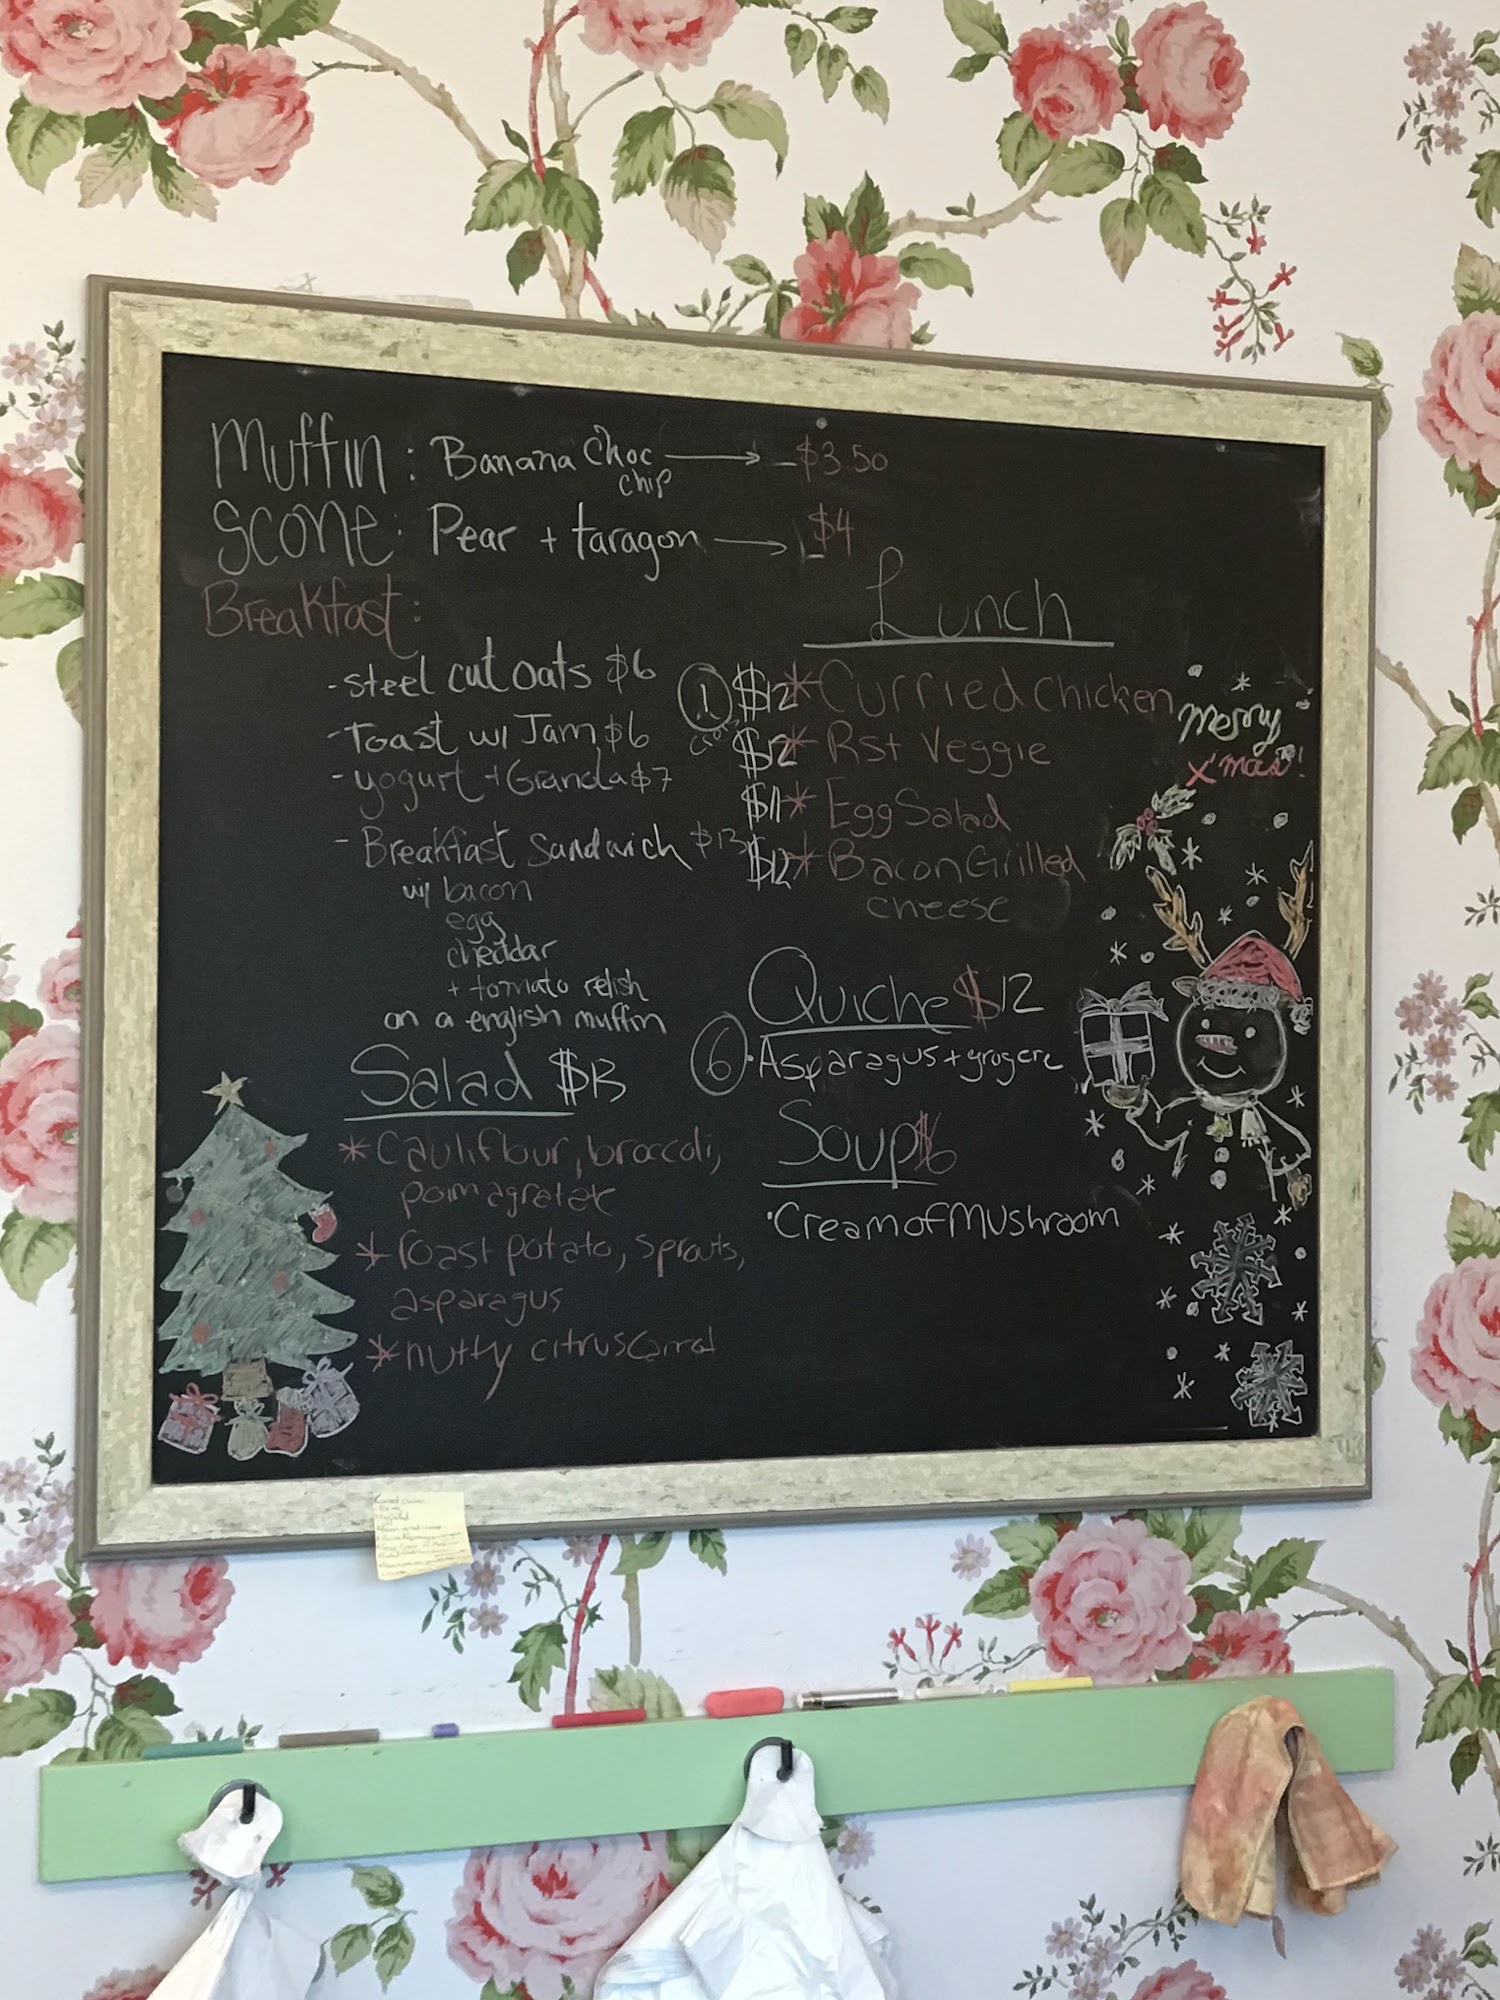 Muffin: Banana Choc chip → $3.50
Scone: Pear + taragon → $4
Breakfast:
- steel cut oats $6
- Toast w/ Jam $6
- yogurt + Granola $7
- Breakfast Sandwich $13
w/ bacon
egg
cheddar
+ tomato relish
on a english muffin
Salad $13
* Cauliflour, broccoli,
pomagretate
* roast potato, sprouts,
asparagus
* nutty citrus Carrot
Lunch
1 $12 * Curried chicken
$12 * Rst Veggie
$11 * Egg Salad
$12 * Bacon Grilled
cheese
Quiche $12
6 • Asparagus + grogere
Soup $6
• Cream of Mushroom
Merry
X'mas!